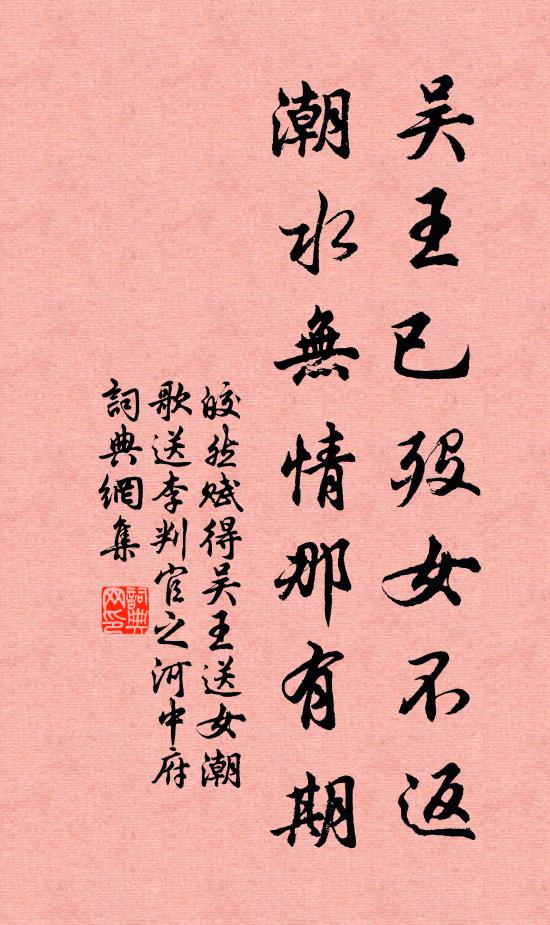 吴王已殁女不返
潮水無情那有期
皎然赋得吴王送女潮
歌送李判官之河中府
詞典網集
詞典
网印